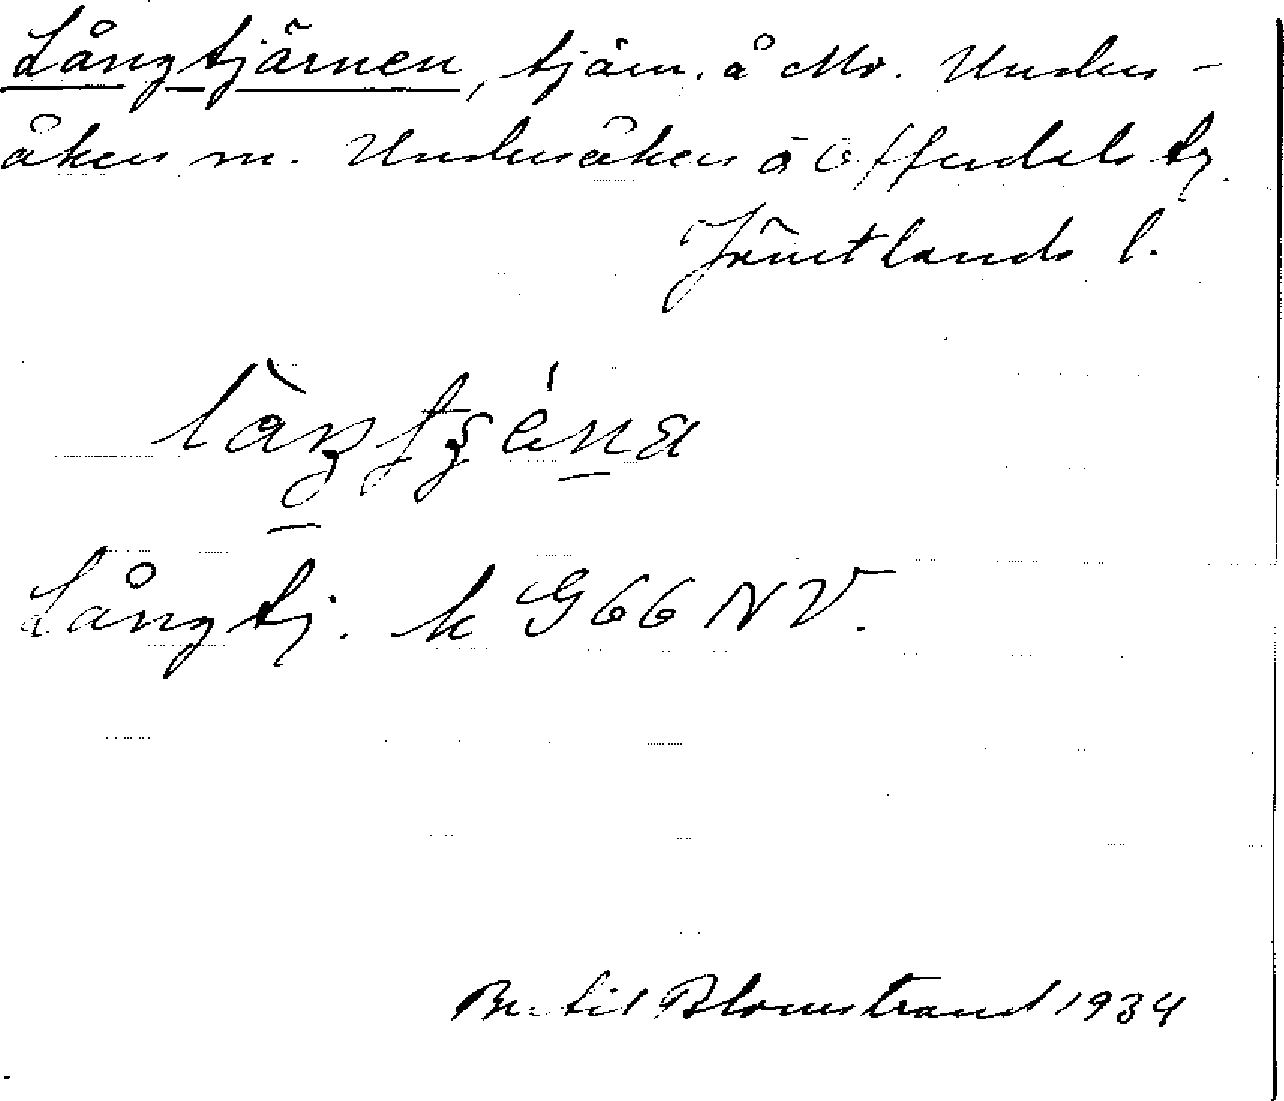 Långtjärnen, tjärn. å Mo. Under-
åkers sn. Undersåkers o Offerdals tg.
Jämtlands l.
Långtj. k G66 NV.
Bertil Blomstrand 1934